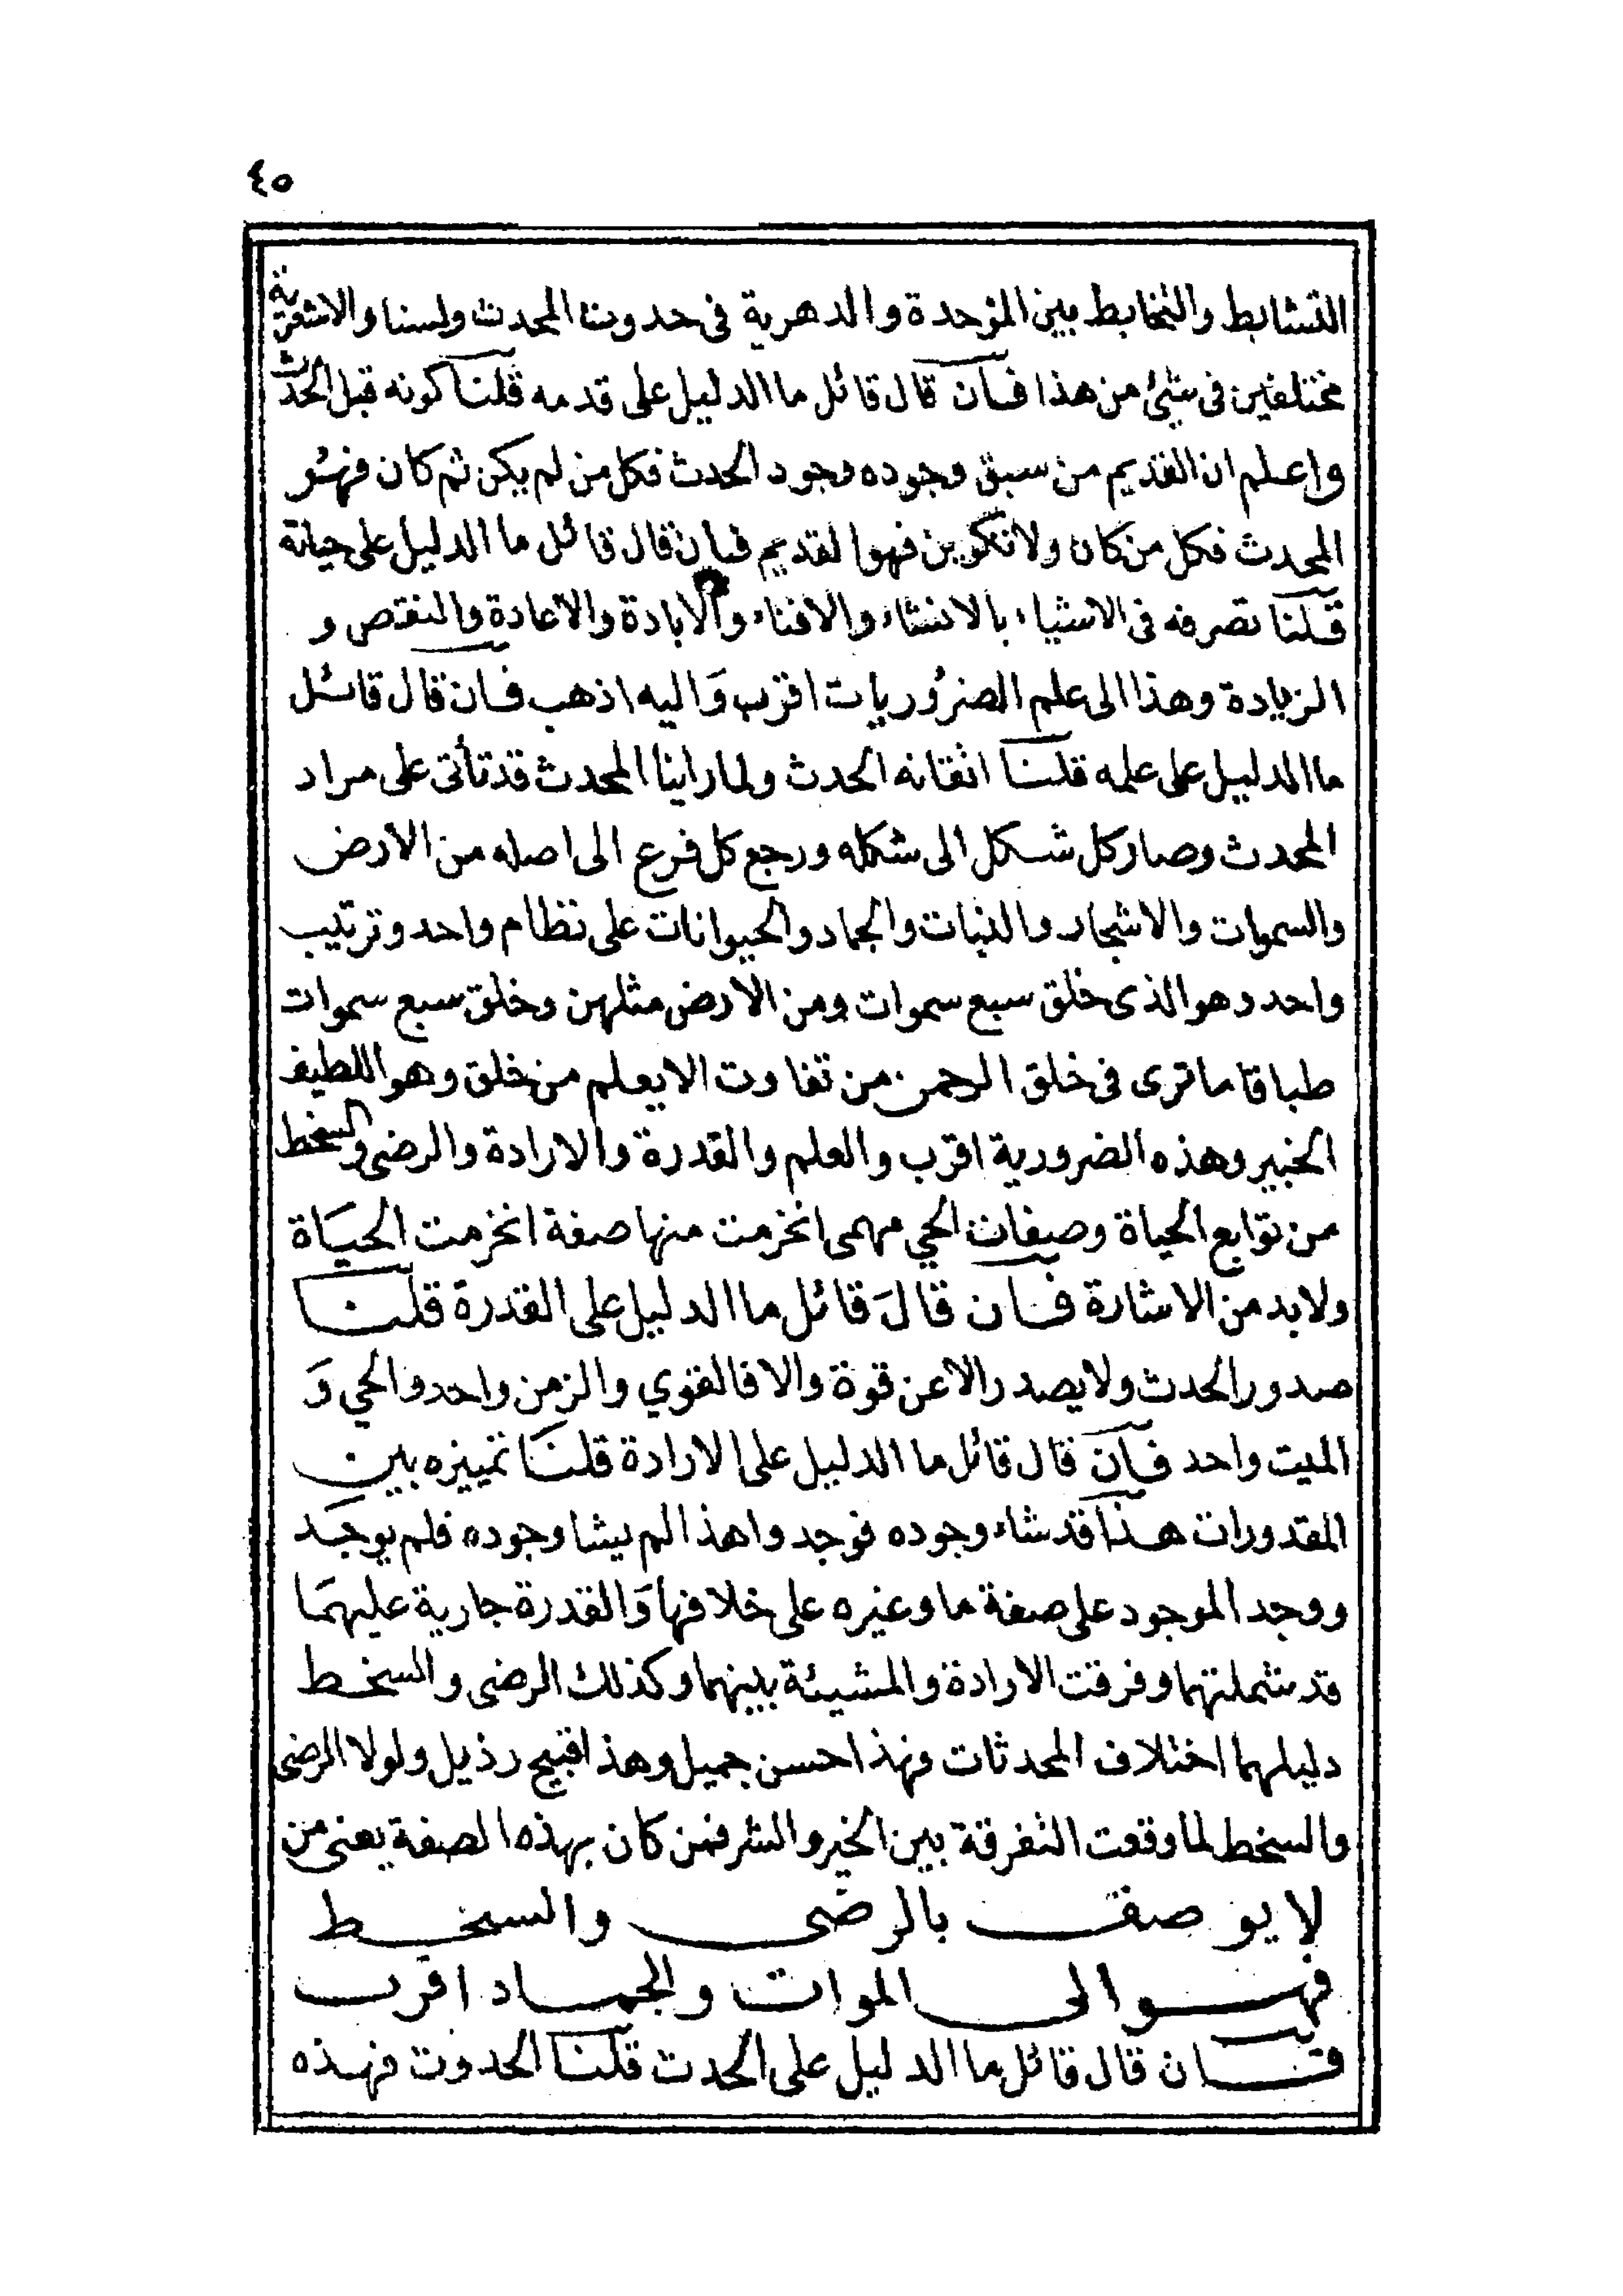 ٤٥
التشابط والتخابط بين الموحدة والدهرية فى حدوث المحدث ولسنا والاشعرية
مختلفين فى شئ من هذا فان قال قائل ما الدليل على قدمه قلنا كونه قبل الحدث
واعلم ان القديم من سبق وجوده وجود الحدث فكل من لم يكن ثم كان فهو
المحدث فكل من كان ولا تكوين فهو القديم فان قال قائل ما الدليل على حياته
قلنا تصرفه فى الاشياء بالانشاء والافناء والابادة والاعادة والنقص و
الزيادة وهذا الى علم الضروريات اقرب واليه اذهب فان قال قائل
ما الدليل على علمه قلنا اتقانه الحدث ولما راينا المحدث قد تأتى على مراد
المحدث وصار كل شكل الى شكله ورجع كل فرع الى اصله من الارض
والسموات والاشجار والنبات والجماد والحيوانات على نظام واحد وترتيب
واحد وهو الذى خلق سبع سموات ومن الارض مثلهن وخلق سبع سموات
طباقا ما ترى فى خلق الرحمن من تفاوت الا يعلم من خلق وهو اللطيف
الخبير وهذه الضرورية اقرب والعلم والقدرة والارادة والرضى والسخط
من توابع الحياة وصفات الحي مهمى انخرمت منها صفة انخرمت الحيَاة
ولابد من الاشارة فان قالَ قائل ما الدليل على القدرة قلنا
صدور الحدث ولا يصدر الا عن قوة والا فالقوي والزمن واحد والحي وَ
الميت واحد فان قال قائل ما الدليل على الارادة قلنَا تمييزه بين
المقدورات هذا قد شاء وجوده فوجد واهذا لم يشا وجوده فلم يوجَد
ووجد الموجود على صفة ما وغيره على خلافها وَالقدرة جارية عليهمَا
قد شملتهما وفرقت الارادة والمشيئة بينهما وكذلك الرضى والسخط
دليلهما اختلاف المحدثات فهذا حسن جميل وهذا قبيح رذيل ولولا الرضى
والسخط لما وقعت التفرقة بين الخير والشر فمن كان بهذه الصفة يعنى من
لا يوصف بالرضى والسخط
فهو الى الموات والجماد اقرب
فان قال قائل ما الدليل على الحدث قلنا الحدوث فهذه